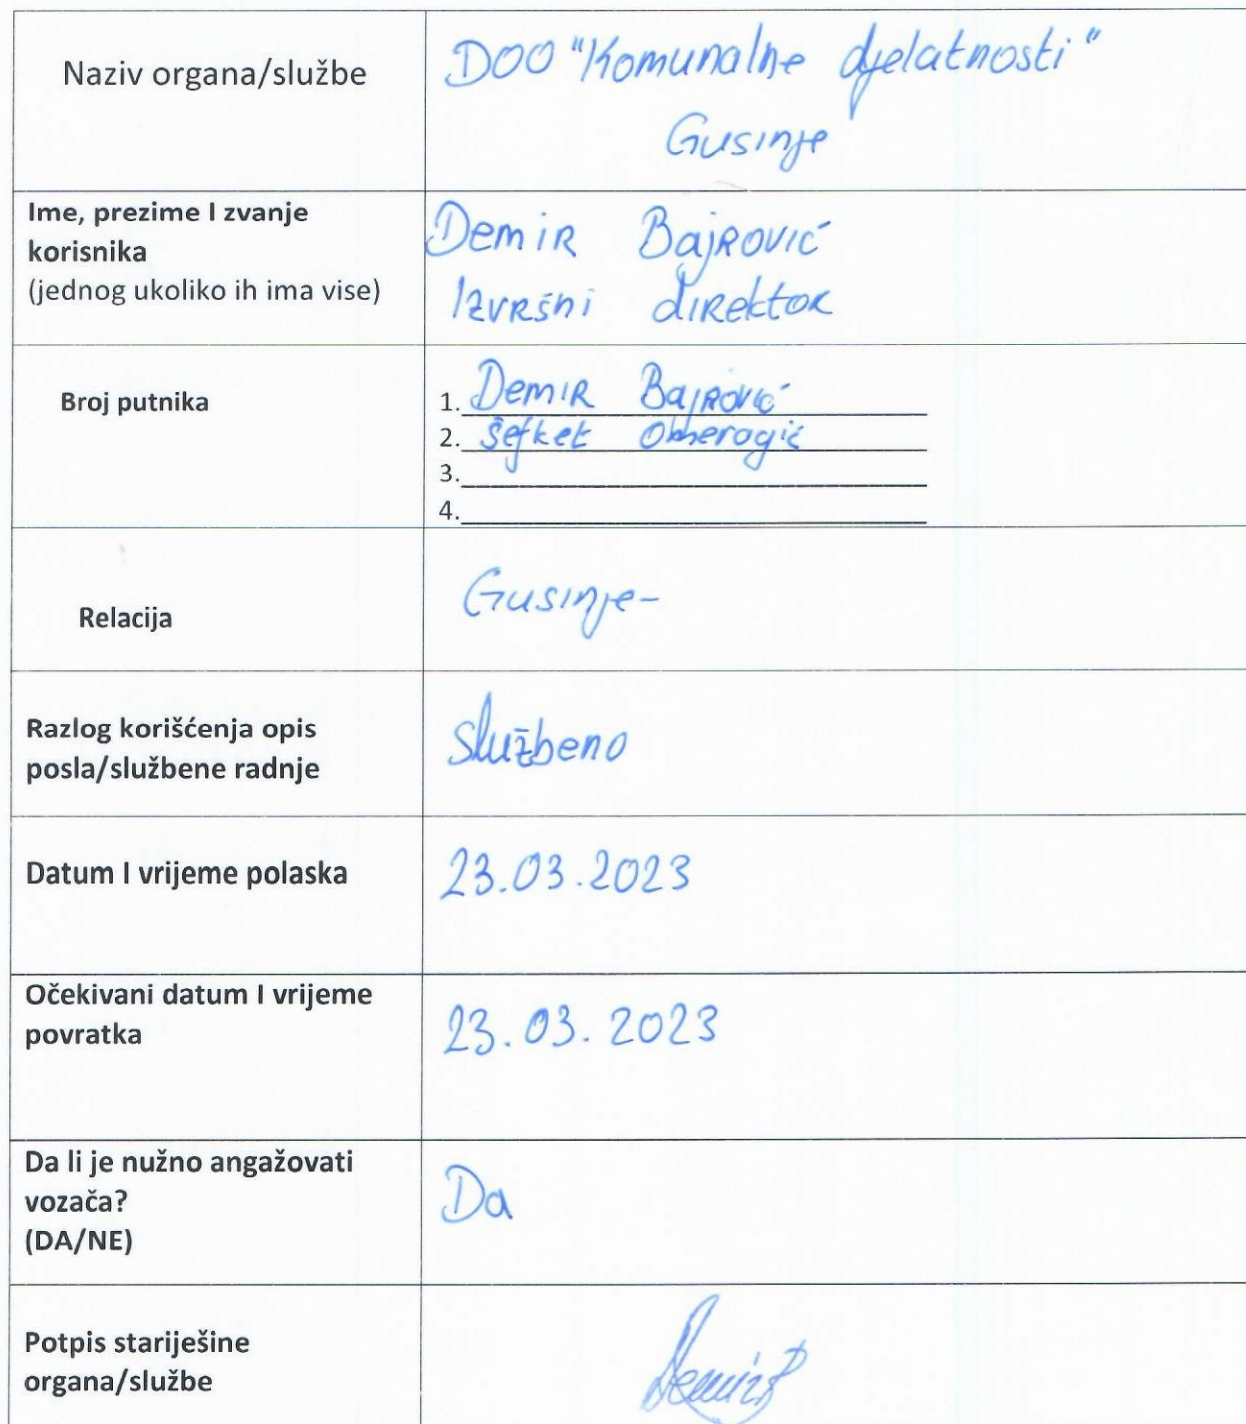 Naziv organa/službe
DOO "Komunalne djelatnosti"
Gusinje
Ime, prezime I zvanje
korisnika
(jednog ukoliko ih ima vise)
Demir Bajrović
Izvršni direktor
Broj putnika
1. Demir Bajrović
2. Šefket Omeragić
3.
4.
Relacija
Gusinje-
Razlog korišćenja opis
posla/službene radnje
službeno
Datum I vrijeme polaska
23.03.2023
Očekivani datum I vrijeme
povratka
23.03.2023
Da li je nužno angažovati
vozača?
(DA/NE)
Da
Potpis starješine
organa/službe